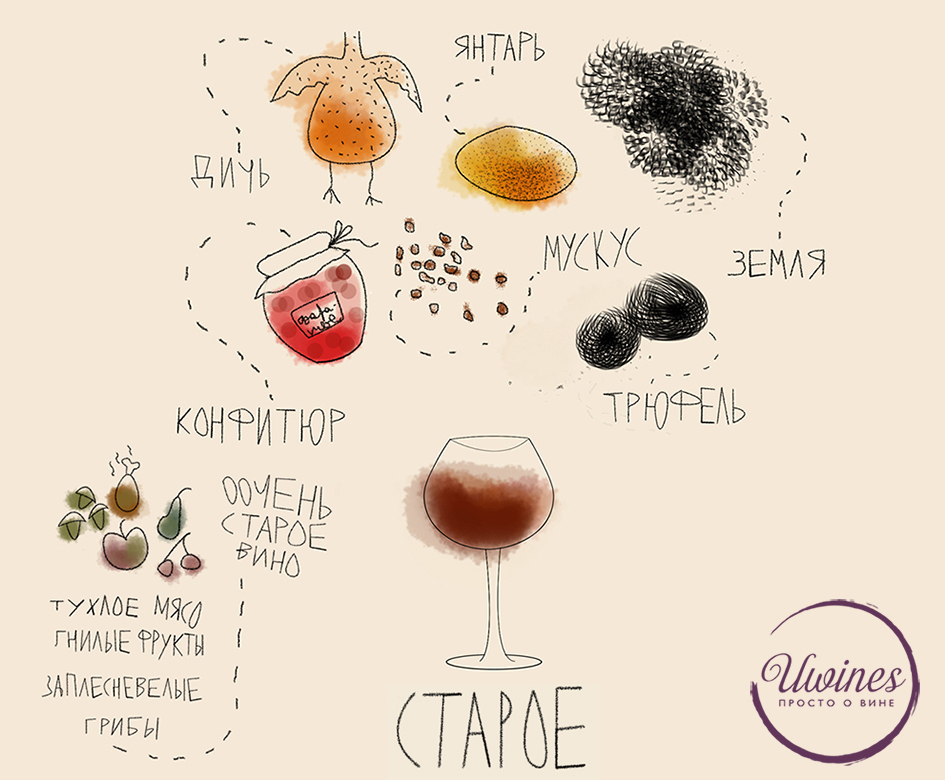 ЯНТАРЬ
ДИЧЬ
МУСКУС
ЗЕМЛЯ
ТРЮФЕЛЬ
КОНФИТЮР
ООЧЕНЬ
СТАРОЕ
ВИНО
ТУХЛОЕ МЯСО
ГНИЛЫЕ ФРУКТЫ
ЗАПЛЕСНЕВЕЛЫЕ
ГРИБЫ
СТАРОЕ
Uwines
ПРОСТО О ВИНЕ